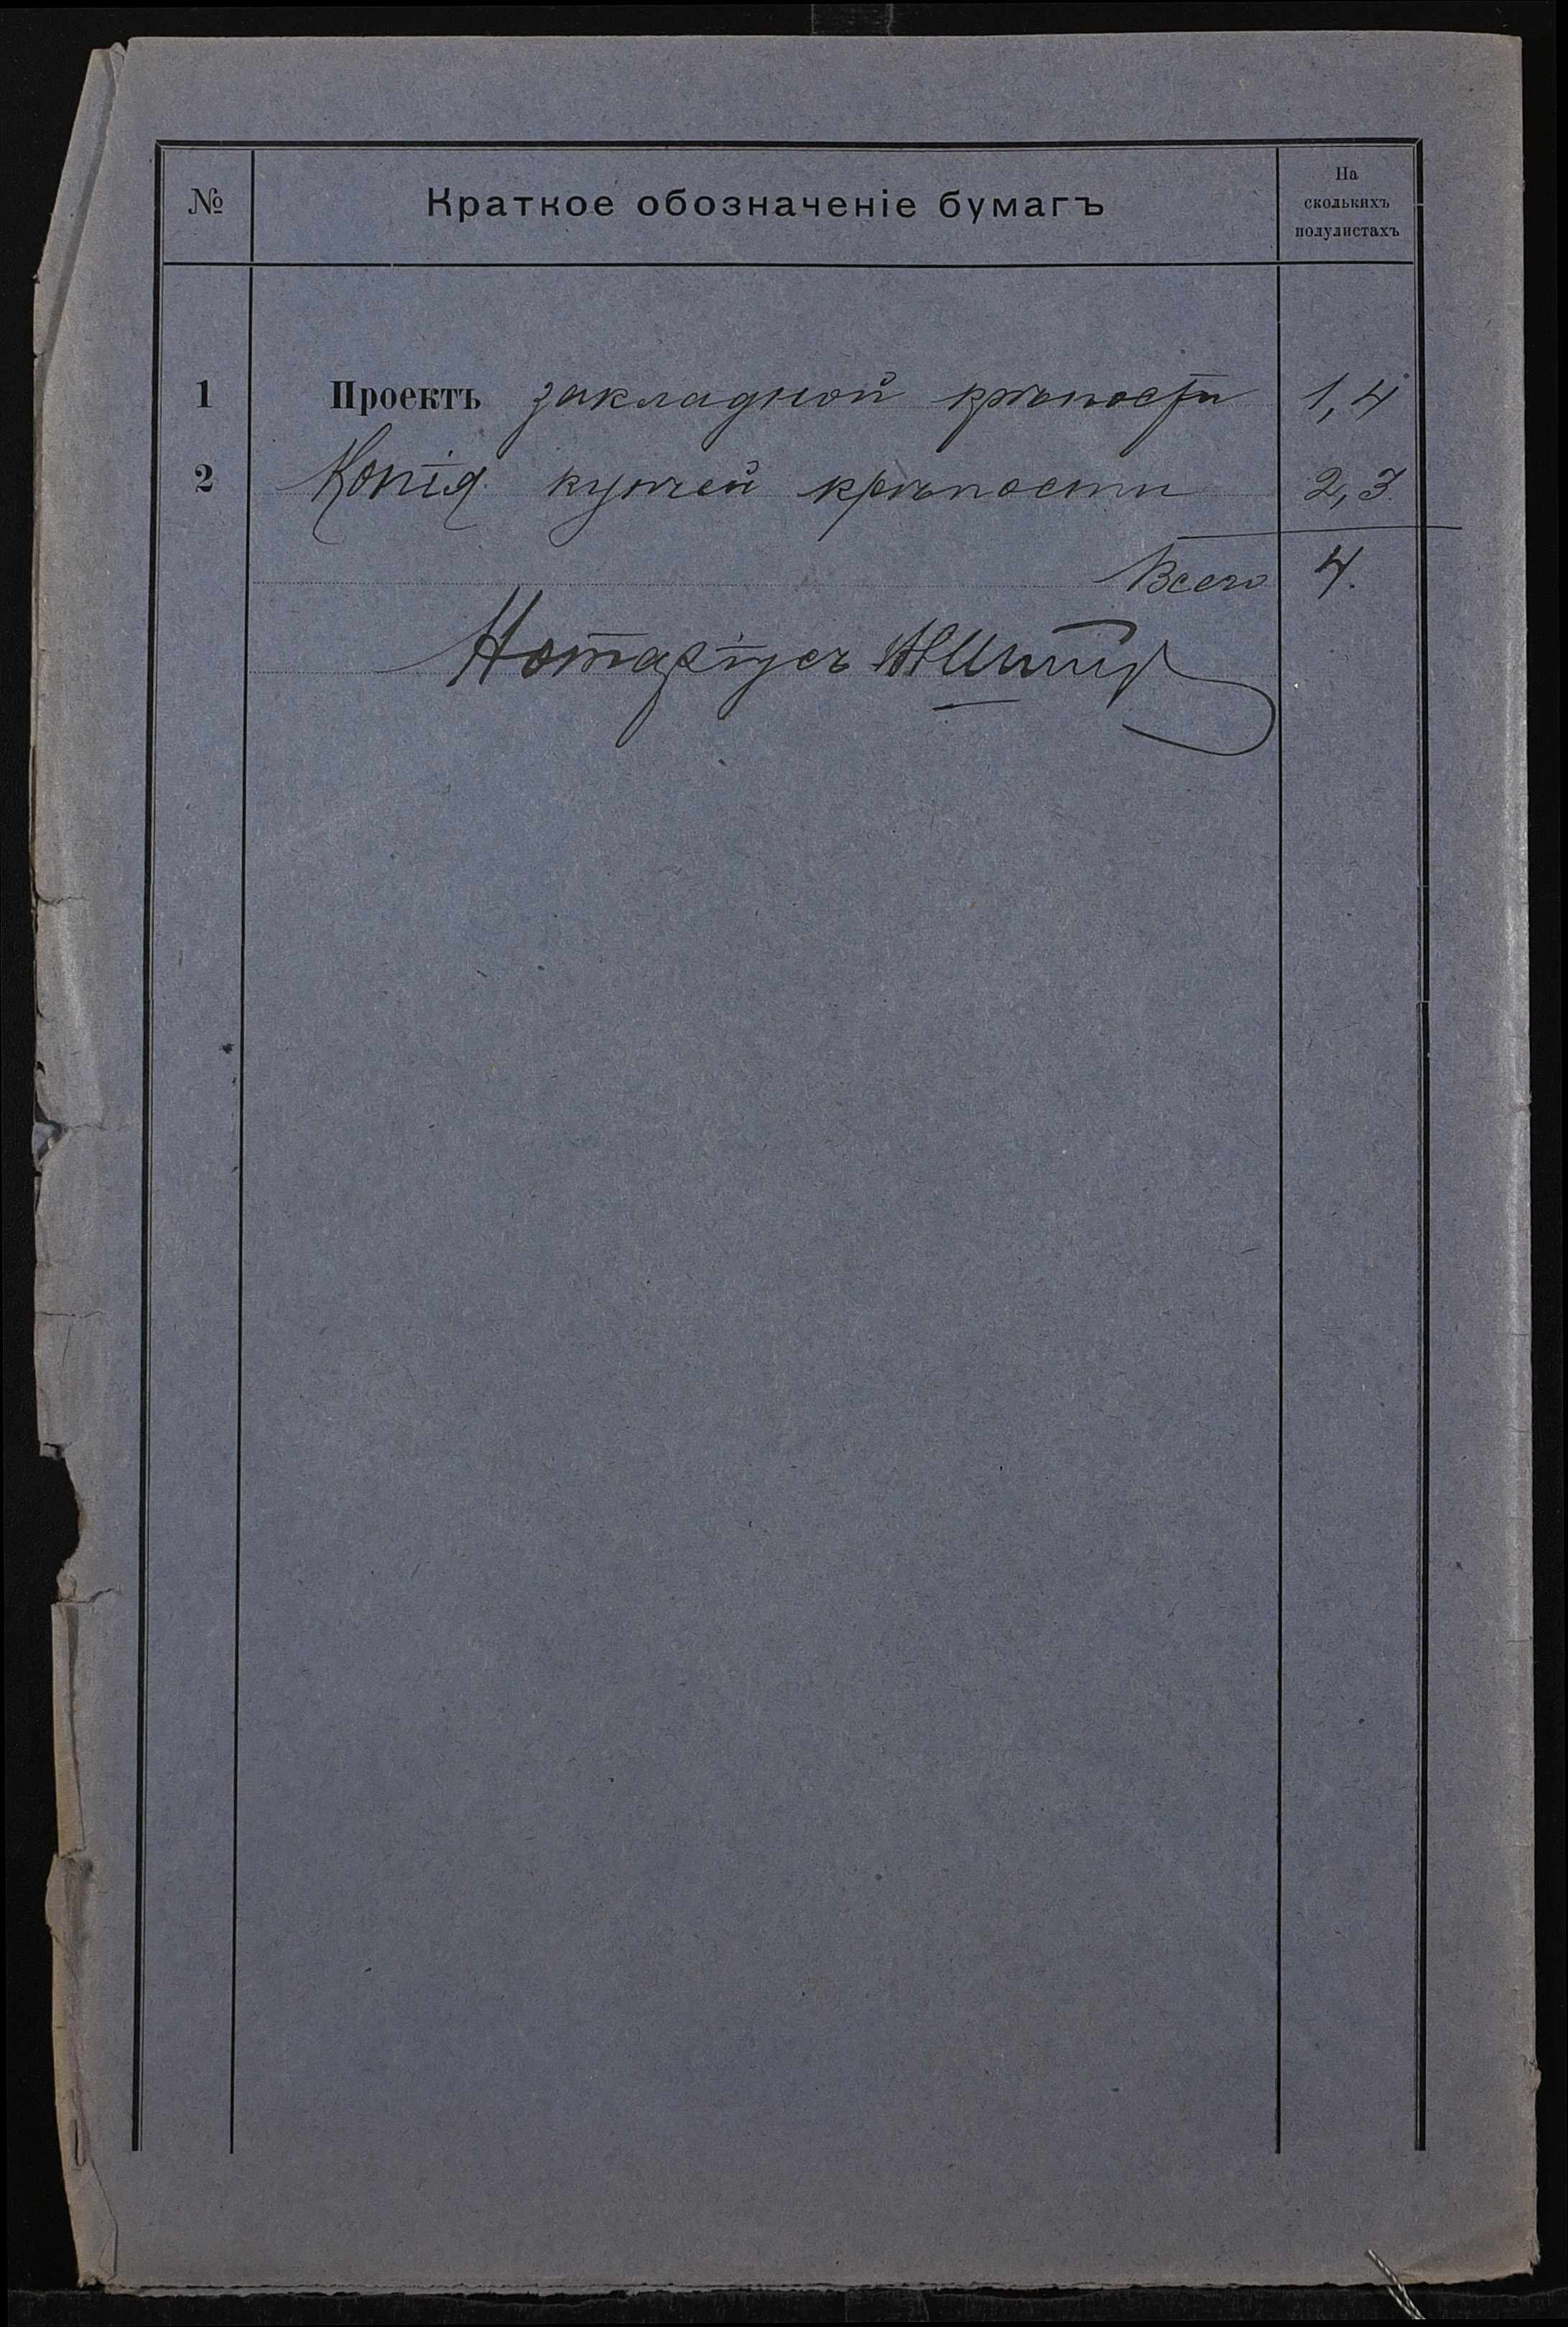 № Краткое обозначеніе бумагъ На
сколькихъ
полулистахъ
1 Проектъ закладной крѣпости 1,4
2 Копія купчей крѣпости 2,3.
Всего 4.
Нотаріусъ